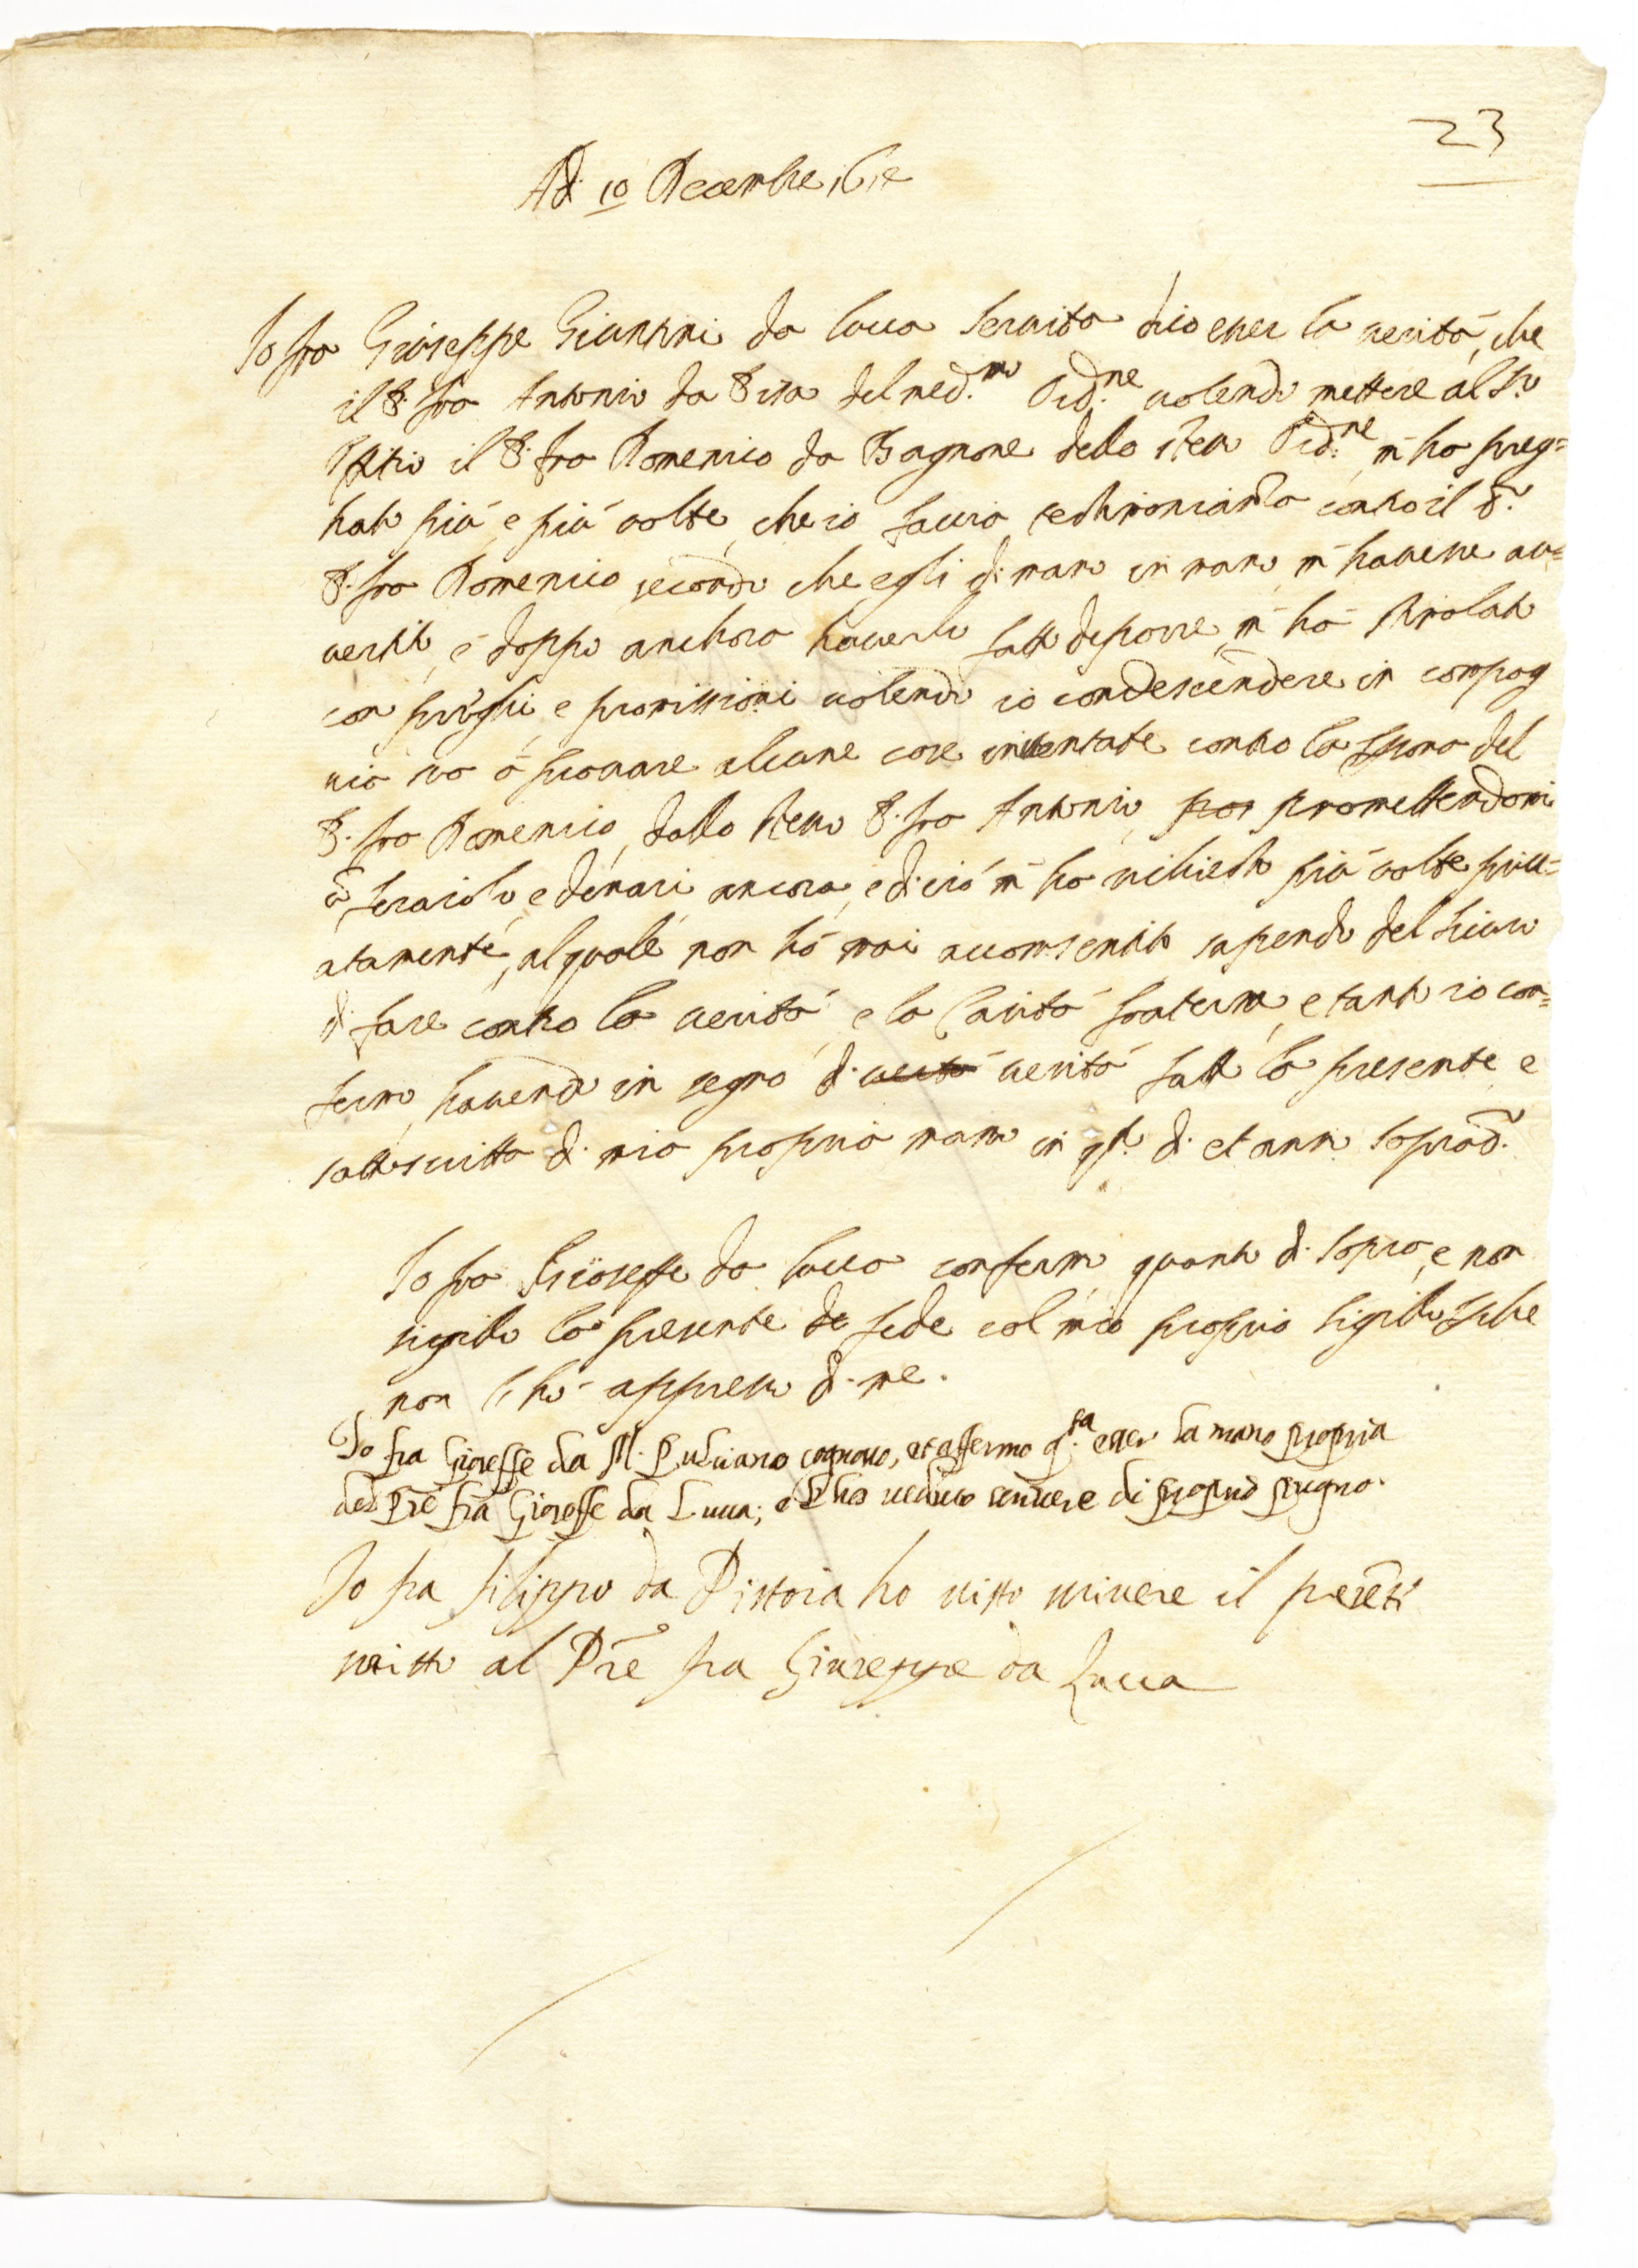 23
Adi 10 Decembre 1612
Io fra Gioseppe Giuntini da Lucca servita dico esser la verità, che
il P. fra Antonio da Pisa del med.mo Ord.ne volendo mettere al S.to
Offitio il P. fra Domenico da Bagnone dello stesso Ord.ne m'ha preg=
hato più e più volte, che io faccia testimonianza contro il d.
P. fra Domenico secondo che egli di mano in mano m'havesse av=
vertito, e doppo anchora haverlo fatto deporre, m'ha stimolato
con prieghi, e promissioni volendo io condescendere in compag
nia sua à provare alcune cose inventate contro la persona del
P. fra Domenico, dallo stesso P. fra Antonio, promettendomi
feraiolo, e denari ancora, e di ciò m'ha richiesto più volte priv=
atamente, al quale non hò mai acconsentito sapendo del sicuro
di fare contro la verità, e la Carità fraterna, e tanto io con=
fermo, havendo in segno di verità verità fatto la presente, e
sottoscritta di mia propria mano in q.to dì et anno soprad.
Io fra Gioseffe da Lucca confermo quanto di sopra, e non
sigillo la presente fede col mio proprio sigillo perche
non l'hò appresso di me.
Io fra Gioseffe da M. Pulciano cognosco, et affermo q.ta esser la mano propria
del Pre fra Gioseffe da Lucca; e l'ho veduto scrivere di proprio pugno.
Io fra Filippo da Pistoia ho visto scrivere il presente
scritto al Pre fra Giuseppe da Lucca